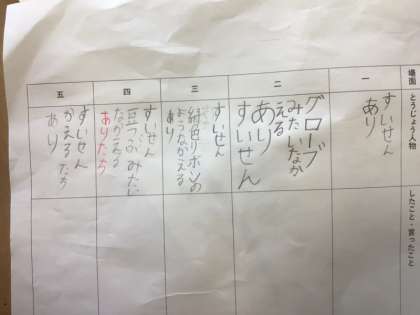 場面
とうじょう人物
したこと・言ったこと
一
すいせん
あり
二
グローブ
みたいなか
える
あり
すいせん
三
すいせん
緑色リボンの
ようなかえる
あり
四
すいせん
豆つぶみたい
なかえる
ありたち
五
すいせん
かえるたち
あり